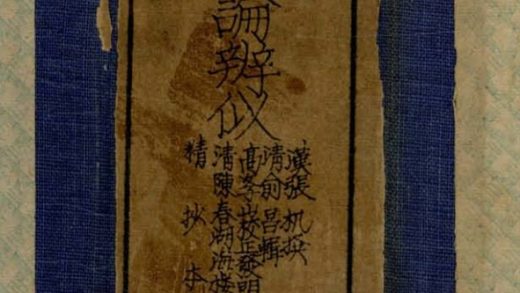 論辨似
漢張机撰
清俞昌輯
髙学山校正發明
清陳春湖海樓
精抄本